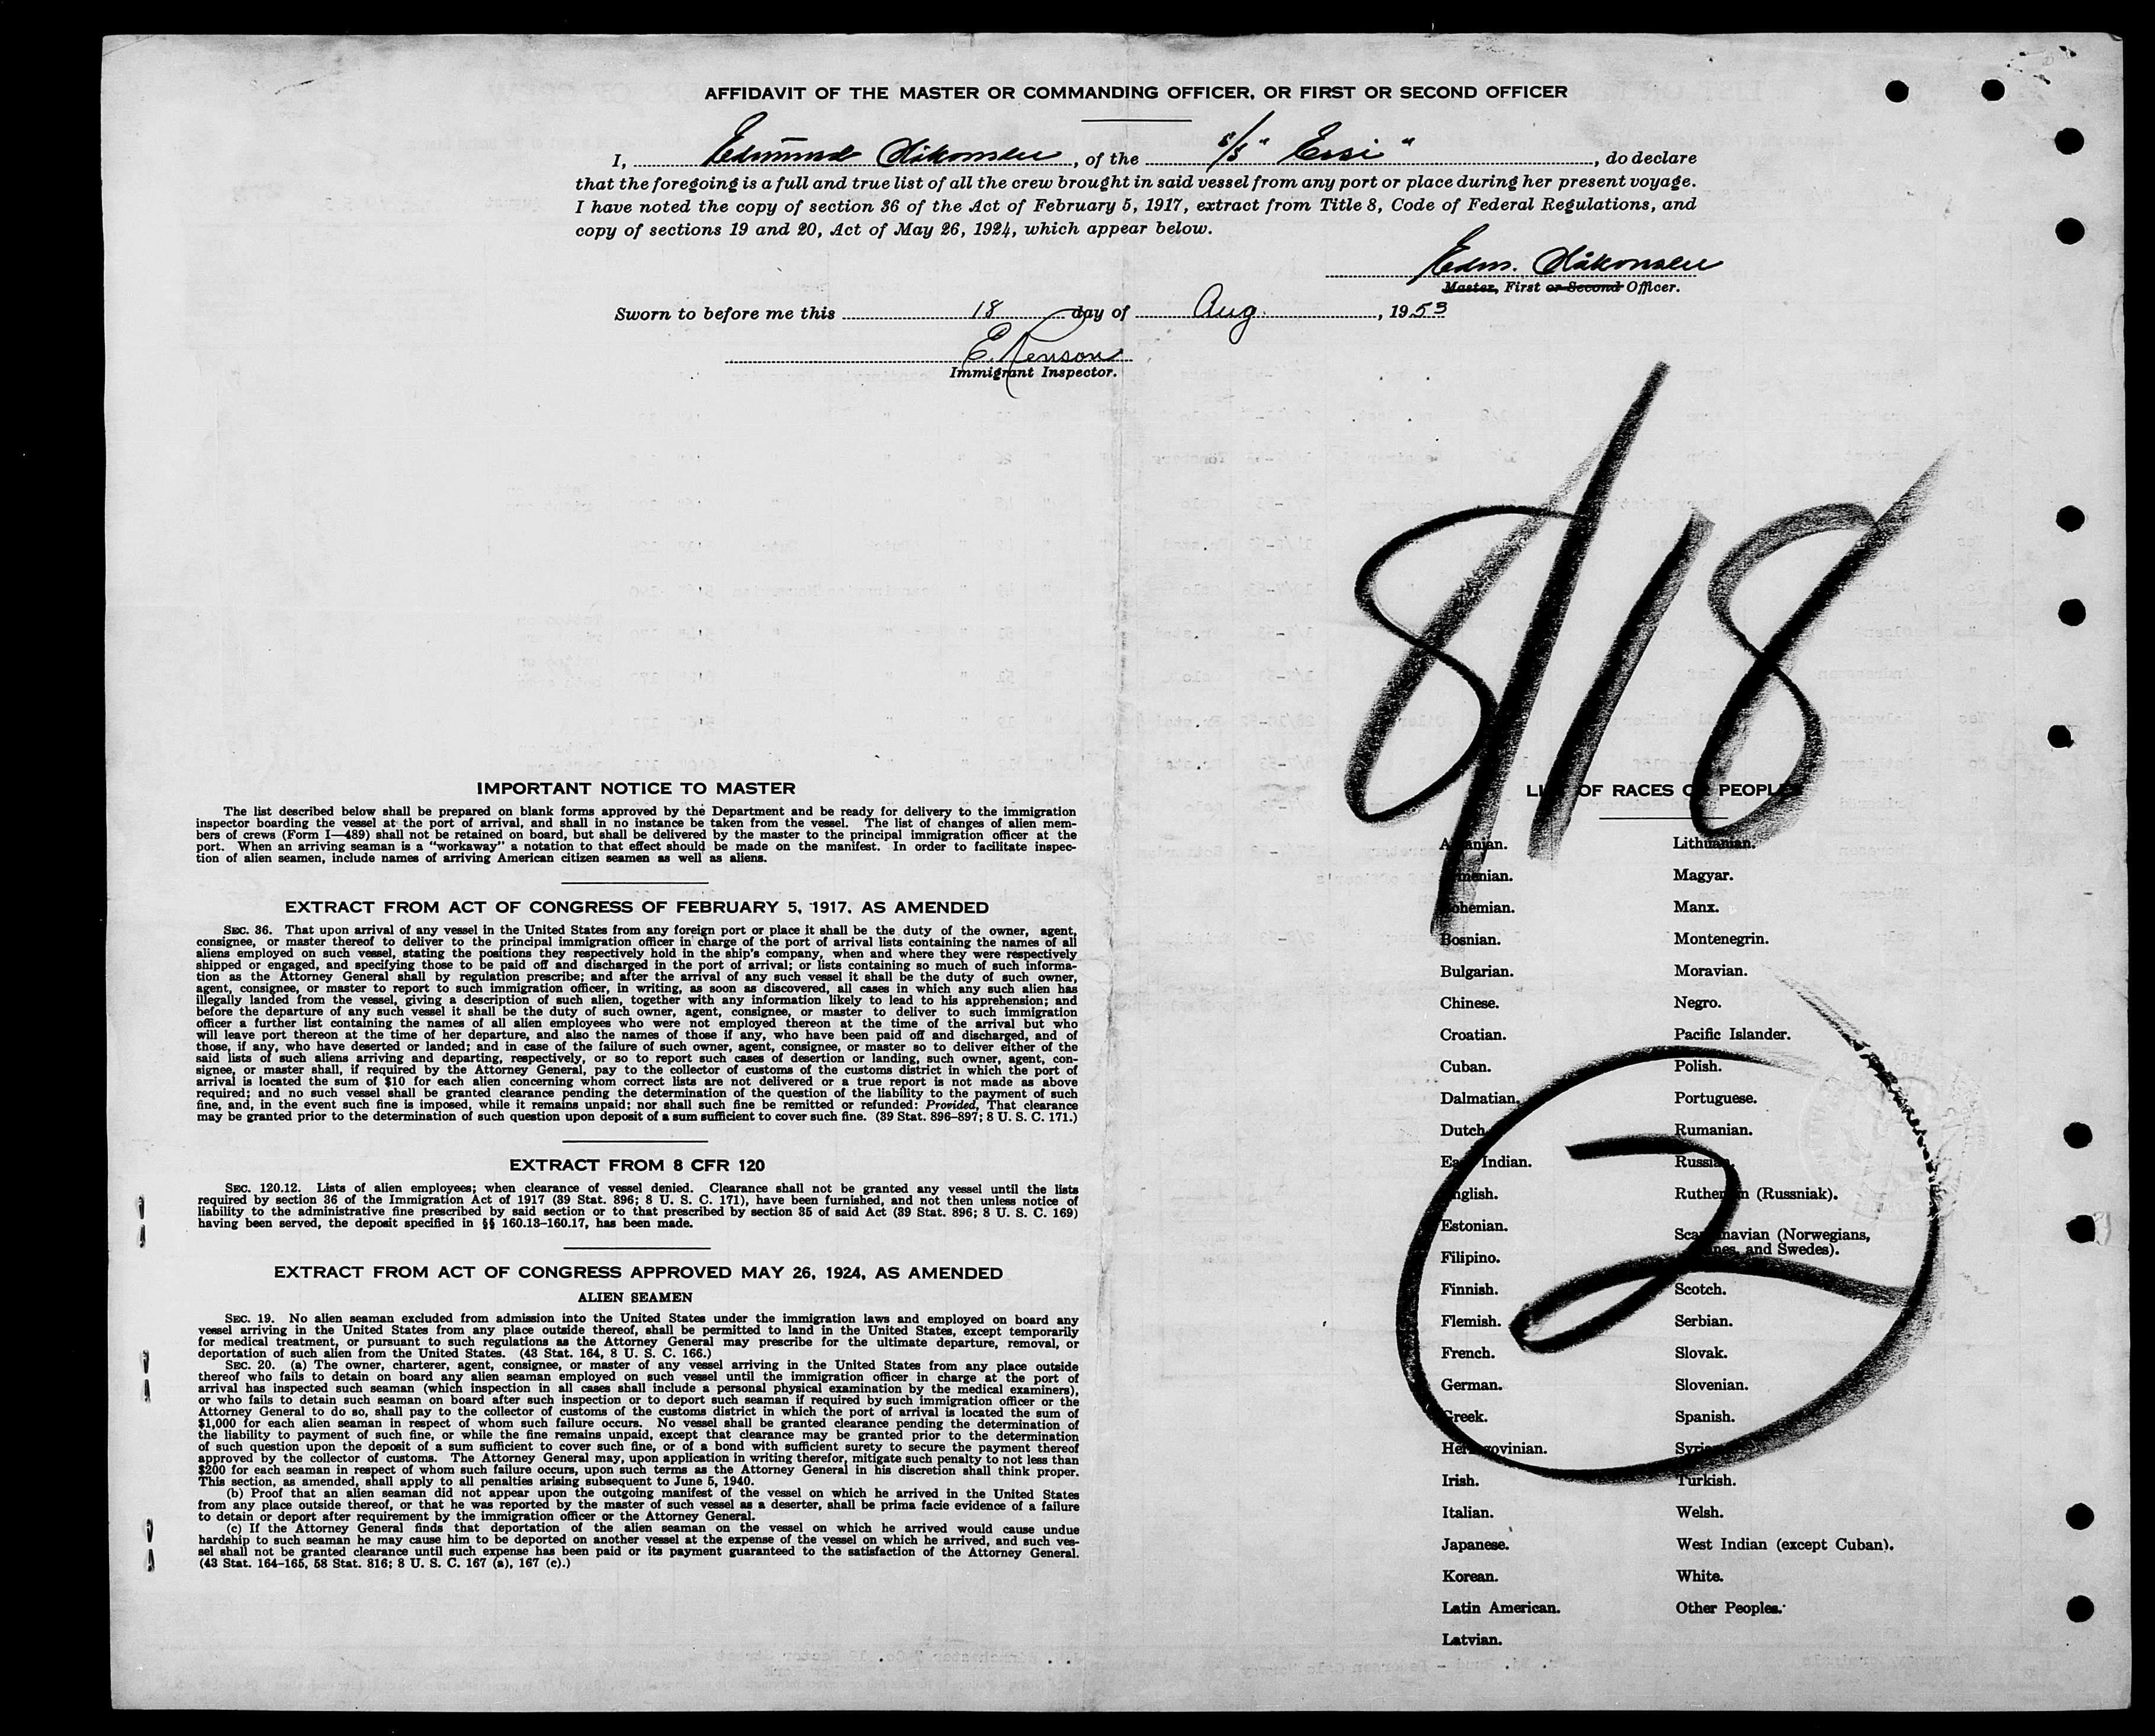 AFFIDAVIT OF THE MASTER OR COMMANDING OFFICER, OR FIRST OR SECOND OFFICER
I, Edmund Håkonsen, of the s/s " Essi ", do declare
that the foregoing is a full and true list of all the crew brought in said vessel from any port or place during her present voyage.
I have noted the copy of section 36 of the Act of February 5, 1917, extract from Title 8, Code of Federal Regulations, and
copy of sections 19 and 20, Act of May 26, 1924, which appear below.
Edm. Håkonsen
Master, First or Second Officer.
Sworn to before me this 18 day of Aug. , 1953
E. Renson
Immigrant Inspector.
8/18
IMPORTANT NOTICE TO MASTER
The list described below shall be prepared on blank forms approved by the Department and be ready for delivery to the immigration
inspector boarding the vessel at the port of arrival, and shall in no instance be taken from the vessel. The list of changes of alien mem-
bers of crews (Form I—489) shall not be retained on board, but shall be delivered by the master to the principal immigration officer at the
port. When an arriving seaman is a "workaway" a notation to that effect should be made on the manifest. In order to facilitate inspec-
tion of alien seamen, include names of arriving American citizen seamen as well as aliens.
EXTRACT FROM ACT OF CONGRESS OF FEBRUARY 5, 1917, AS AMENDED
SEC. 36. That upon arrival of any vessel in the United States from any foreign port or place it shall be the duty of the owner, agent,
consignee, or master thereof to deliver to the principal immigration officer in charge of the port of arrival lists containing the names of all
aliens employed on such vessel, stating the positions they respectively hold in the ship's company, when and where they were respectively
shipped or engaged, and specifying those to be paid off and discharged in the port of arrival; or lists containing so much of such informa-
tion as the Attorney General shall by regulation prescribe; and after the arrival of any such vessel it shall be the duty of such owner,
agent, consignee, or master to report to such immigration officer, in writing, as soon as discovered, all cases in which any such alien has
illegally landed from the vessel, giving a description of such alien, together with any information likely to lead to his apprehension; and
before the departure of any such vessel it shall be the duty of such owner, agent, consignee, or master to deliver to such immigration
officer a further list containing the names of all alien employees who were not employed thereon at the time of the arrival but who
will leave port thereon at the time of her departure, and also the names of those if any, who have been paid off and discharged, and of
those, if any, who have deserted or landed; and in case of the failure of such owner, agent, consignee, or master so to deliver either of the
said lists of such aliens arriving and departing, respectively, or so to report such cases of desertion or landing, such owner, agent, con-
signee, or master shall, if required by the Attorney General, pay to the collector of customs of the customs district in which the port of
arrival is located the sum of $10 for each alien concerning whom correct lists are not delivered or a true report is not made as above
required; and no such vessel shall be granted clearance pending the determination of the question of the liability to the payment of such
fine, and, in the event such fine is imposed, while it remains unpaid; nor shall such fine be remitted or refunded: Provided, That clearance
may be granted prior to the determination of such question upon deposit of a sum sufficient to cover such fine. (39 Stat. 896–897; 8 U. S. C. 171.)
EXTRACT FROM 8 CFR 120
SEC. 120.12. Lists of alien employees; when clearance of vessel denied. Clearance shall not be granted any vessel until the lists
required by section 36 of the Immigration Act of 1917 (39 Stat. 896; 8 U. S. C. 171), have been furnished, and not then unless notice of
liability to the administrative fine prescribed by said section or to that prescribed by section 35 of said Act (39 Stat. 896; 8 U. S. C. 169)
having been served, the deposit specified in §§ 160.13–160.17, has been made.
EXTRACT FROM ACT OF CONGRESS APPROVED MAY 26, 1924, AS AMENDED
ALIEN SEAMEN
SEC. 19. No alien seaman excluded from admission into the United States under the immigration laws and employed on board any
vessel arriving in the United States from any place outside thereof, shall be permitted to land in the United States, except temporarily
for medical treatment, or pursuant to such regulations as the Attorney General may prescribe for the ultimate departure, removal, or
deportation of such alien from the United States. (43 Stat. 164, 8 U. S. C. 166.)
SEC. 20. (a) The owner, charterer, agent, consignee, or master of any vessel arriving in the United States from any place outside
thereof who fails to detain on board any alien seaman employed on such vessel until the immigration officer in charge at the port of
arrival has inspected such seaman (which inspection in all cases shall include a personal physical examination by the medical examiners),
or who fails to detain such seaman on board after such inspection or to deport such seaman if required by such immigration officer or the
Attorney General to do so, shall pay to the collector of customs of the customs district in which the port of arrival is located the sum of
$1,000 for each alien seaman in respect of whom such failure occurs. No vessel shall be granted clearance pending the determination of
the liability to payment of such fine, or while the fine remains unpaid, except that clearance may be granted prior to the determination
of such question upon the deposit of a sum sufficient to cover such fine, or of a bond with sufficient surety to secure the payment thereof
approved by the collector of customs. The Attorney General may, upon application in writing therefor, mitigate such penalty to not less than
$200 for each seaman in respect of whom such failure occurs, upon such terms as the Attorney General in his discretion shall think proper.
This section, as amended, shall apply to all penalties arising subsequent to June 5, 1940.
(b) Proof that an alien seaman did not appear upon the outgoing manifest of the vessel on which he arrived in the United States
from any place outside thereof, or that he was reported by the master of such vessel as a deserter, shall be prima facie evidence of a failure
to detain or deport after requirement by the immigration officer or the Attorney General.
(c) If the Attorney General finds that deportation of the alien seaman on the vessel on which he arrived would cause undue
hardship to such seaman he may cause him to be deported on another vessel at the expense of the vessel on which he arrived, and such ves-
sel shall not be granted clearance until such expense has been paid or its payment guaranteed to the satisfaction of the Attorney General.
(43 Stat. 164–165, 58 Stat. 816; 8 U. S. C. 167 (a), 167 (c).)
LIST OF RACES OR PEOPLES
Albanian.
Armenian.
Bohemian.
Bosnian.
Bulgarian.
Chinese.
Croatian.
Cuban.
Dalmatian.
Dutch.
East Indian.
English.
Estonian.
Filipino.
Finnish.
Flemish.
French.
German.
Greek.
Herzegovinian.
Irish.
Italian.
Japanese.
Korean.
Latin American.
Latvian.
Lithuanian.
Magyar.
Manx.
Montenegrin.
Moravian.
Negro.
Pacific Islander.
Polish.
Portuguese.
Rumanian.
Russian.
Ruthenian (Russniak).
Scandinavian (Norwegians,
Danes, and Swedes).
Scotch.
Serbian.
Slovak.
Slovenian.
Spanish.
Syrian.
Turkish.
Welsh.
West Indian (except Cuban).
White.
Other Peoples.
2